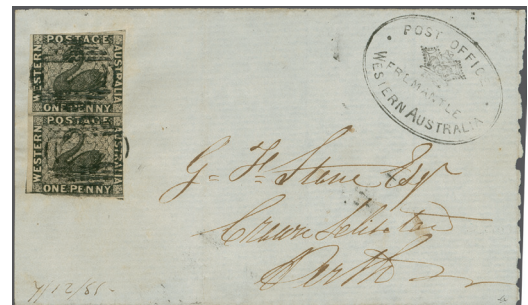 POSTAGE
WESTERN
AUSTRALIA
ONE PENNY
POSTAGE
WESTERN
AUSTRALIA
ONE PENNY
POST OFFICE
FREMANTLE
WESTERN AUSTRALIA
G= F= Stone Esqr
Crown Solicitor
Perth